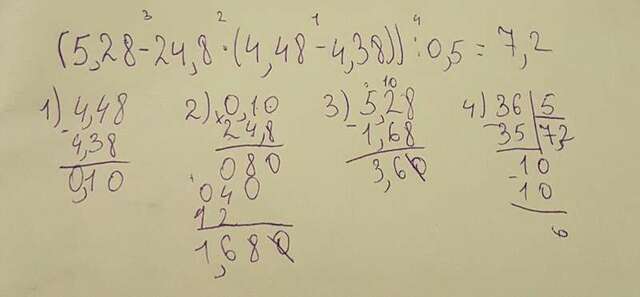 3 2 1 4
(5,28-24,8·(4,48-4,38)):0,5=7,2
1) 4,48
-4,38
0,10
2) ×0,10
24,8
080
+040
12
1,680
10
3) 5,28
-1,68
3,60
4) 36|5
-35|7,2
10
-10
0